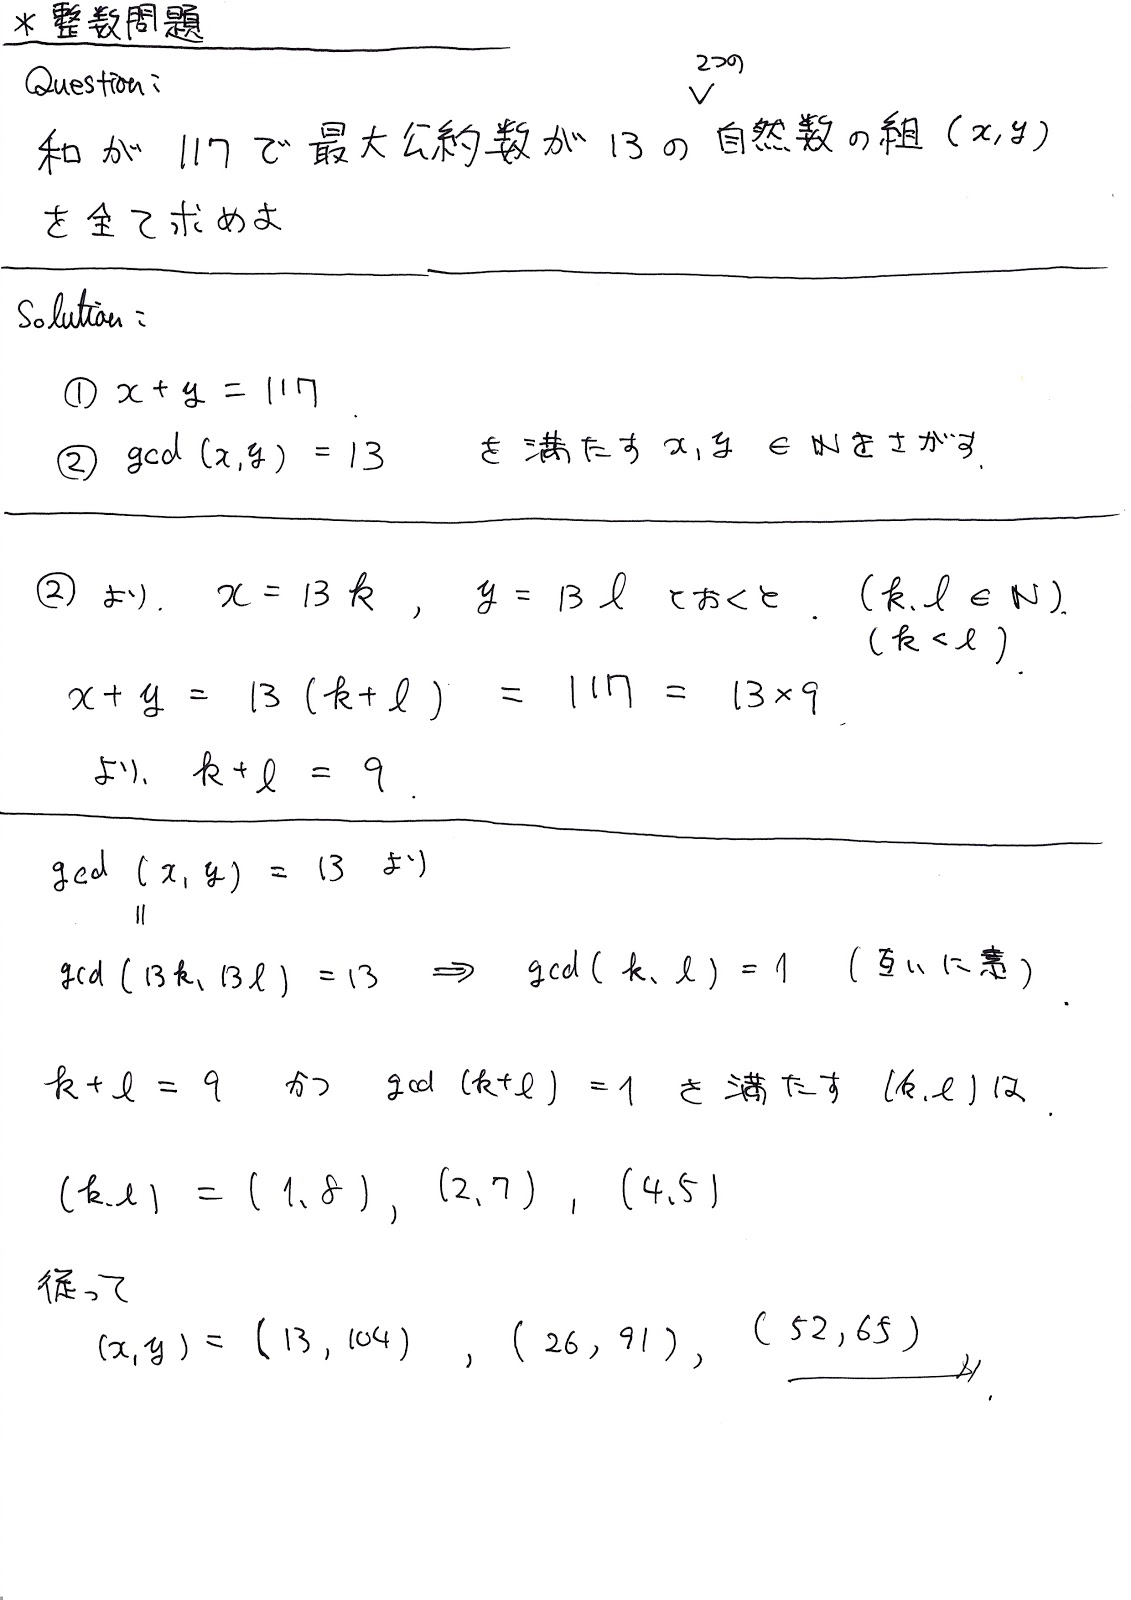 * 整数問題
Question:
2つの
和が 117で最大公約数が13の 自然数の組 (x,y)
を全て求めよ
Solution:
① x+y = 117
② gcd (x,y) = 13 を満たす x,y ∈ ℕをさがす.
② より. x = 13k , y = 13l とおくと. (k,l ∈ ℕ).
(k<l).
x+y = 13 (k+l) = 117 = 13×9
より、 k+l = 9.
gcd (x,y) = 13 より
||
gcd(13k, 13l) = 13 ⇒ gcd(k, l) = 1 (互いに素).
k+l = 9 かつ gcd (k+l) = 1 を満たす (k,l)は.
(k,l) = (1,8), (2,7), (4,5)
従って
(x,y) = (13, 104) , (26, 91), (52, 65)